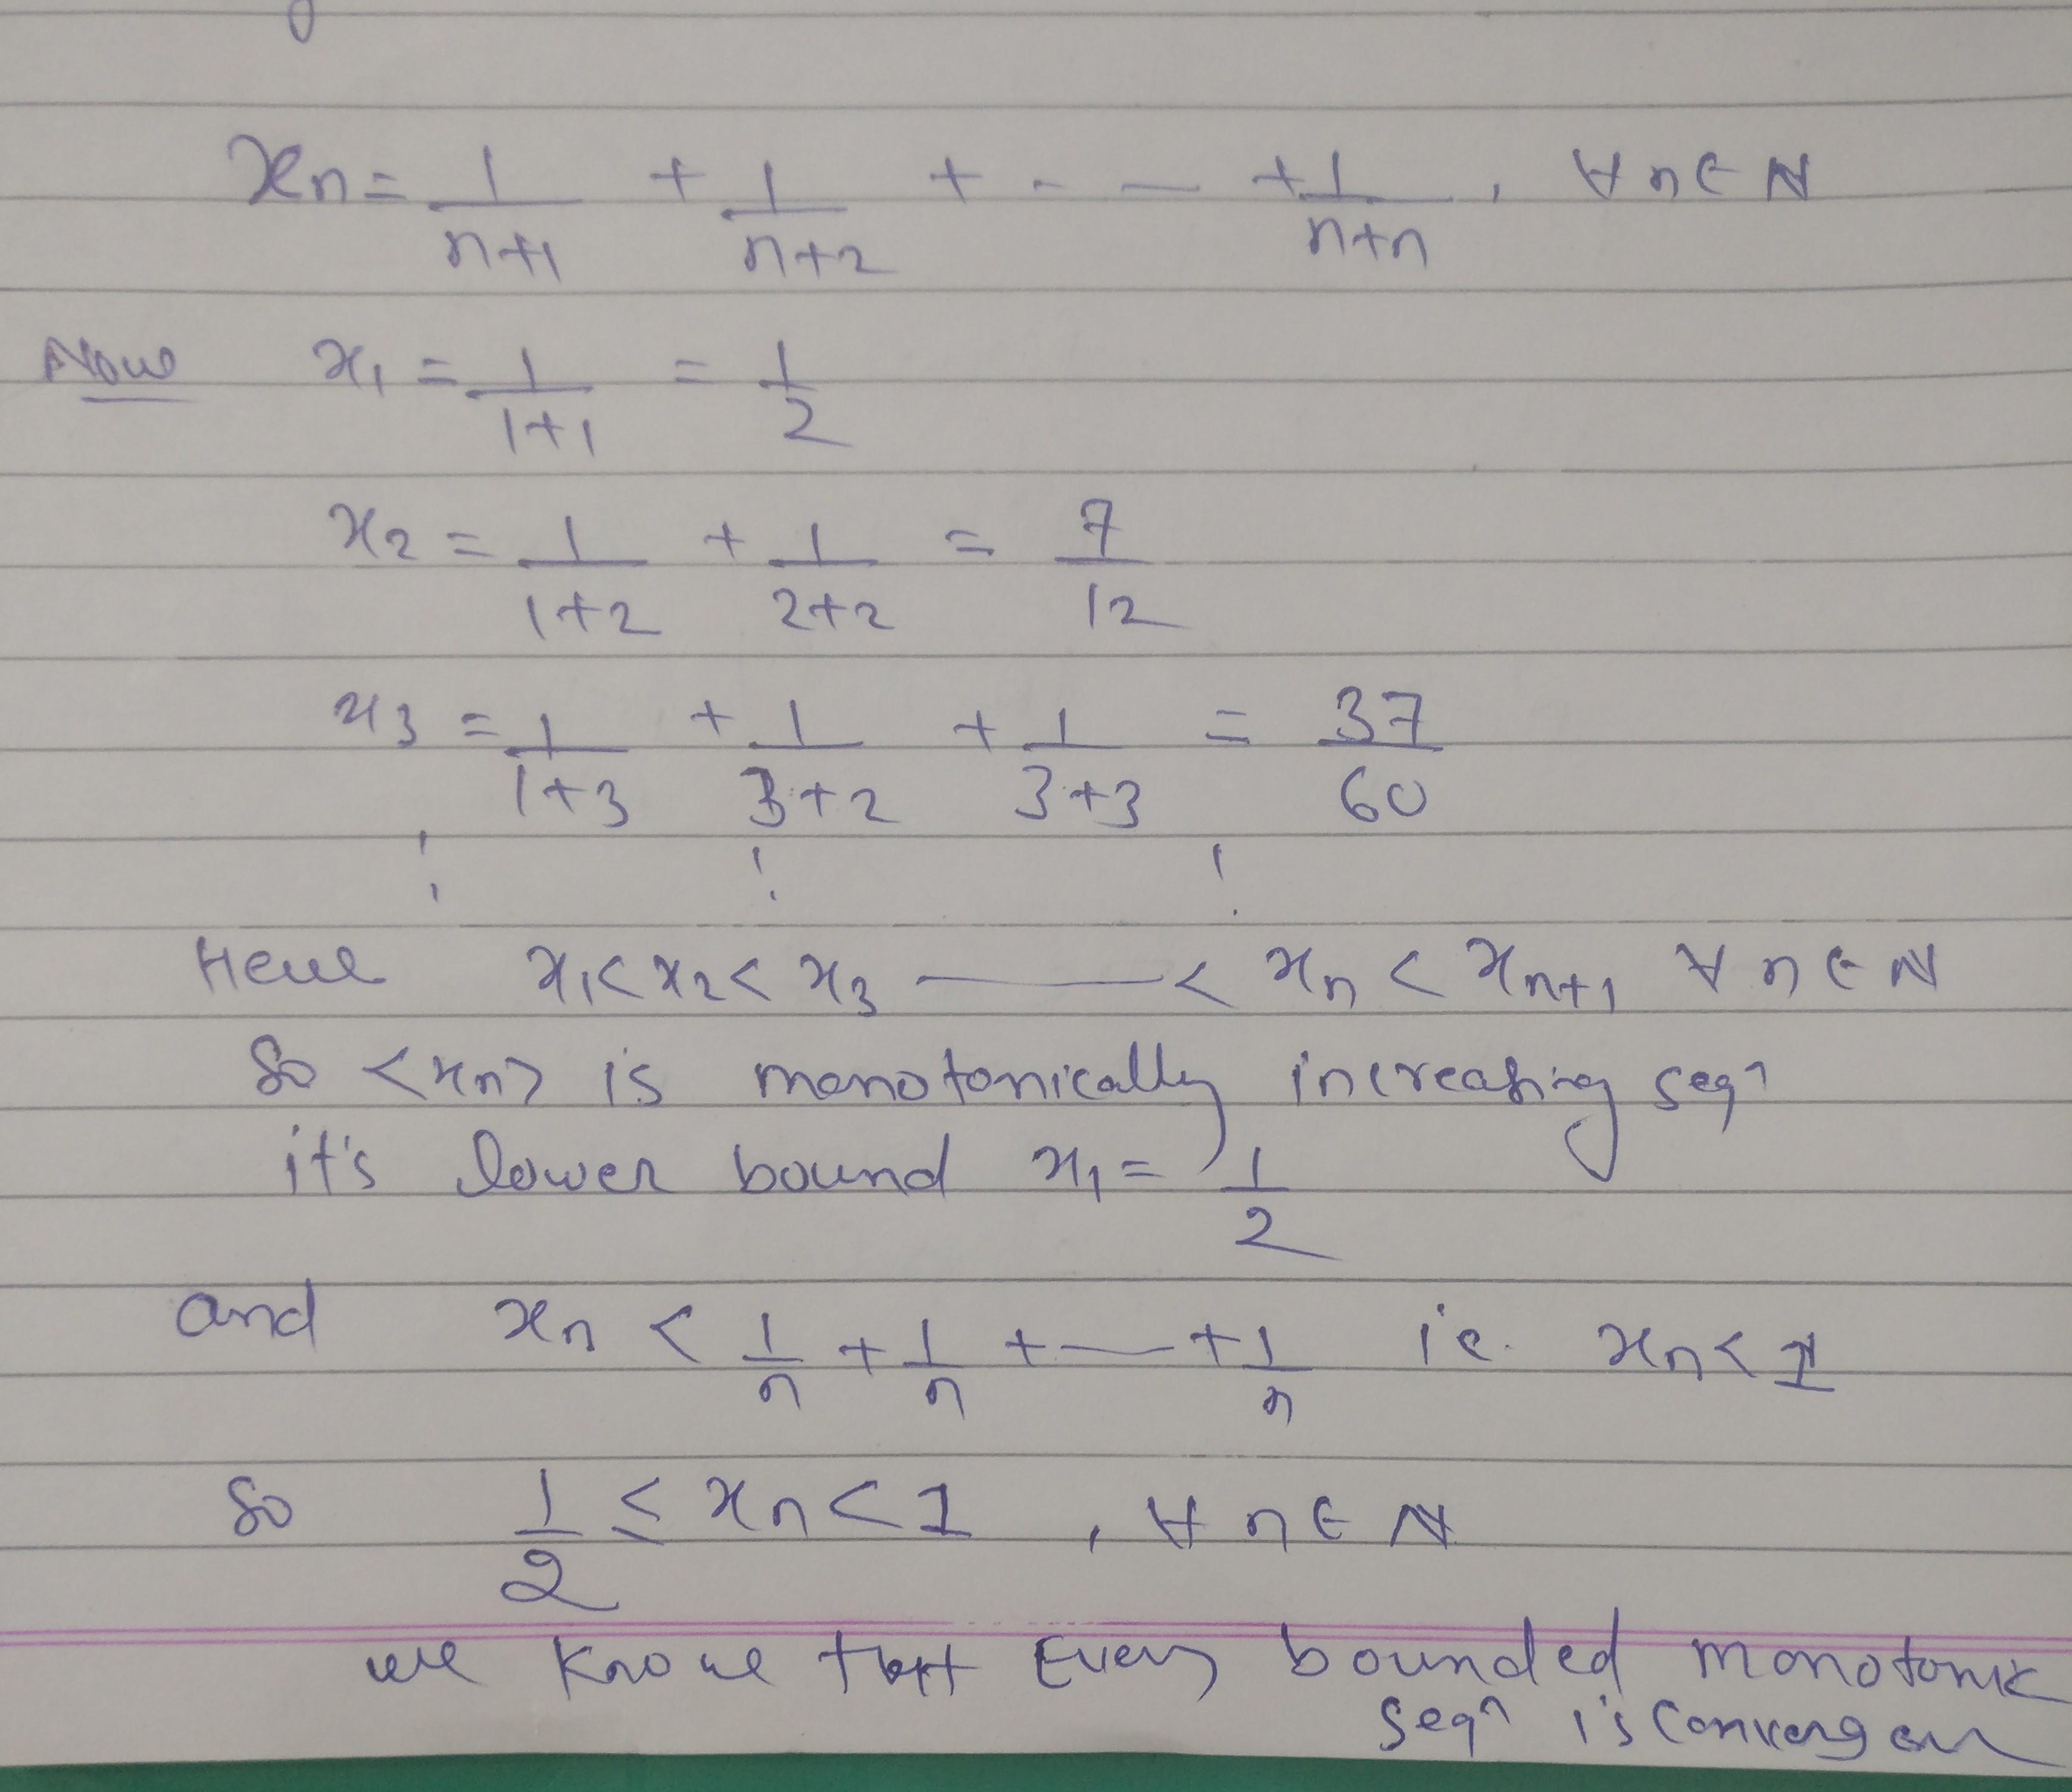 xn = 1/(n+1) + 1/(n+2) + - — + 1/(n+n), ∀ n ∈ N
Now x1 = 1/(1+1) = 1/2
x2 = 1/(1+2) + 1/(2+2) = 7/12
x3 = 1/(1+3) + 1/(3+2) + 1/(3+3) = 37/60
Here x1 < x2 < x3 —— < xn < xn+1 ∀ n ∈ N
So <xn> is monotonically increasing seqn
it's lower bound x1 = 1/2
and xn < 1/n + 1/n + — + 1/n ie. xn < 1
So 1/2 ≤ xn < 1, ∀ n ∈ N
we know that Every bounded monotonic
seqn is convergen